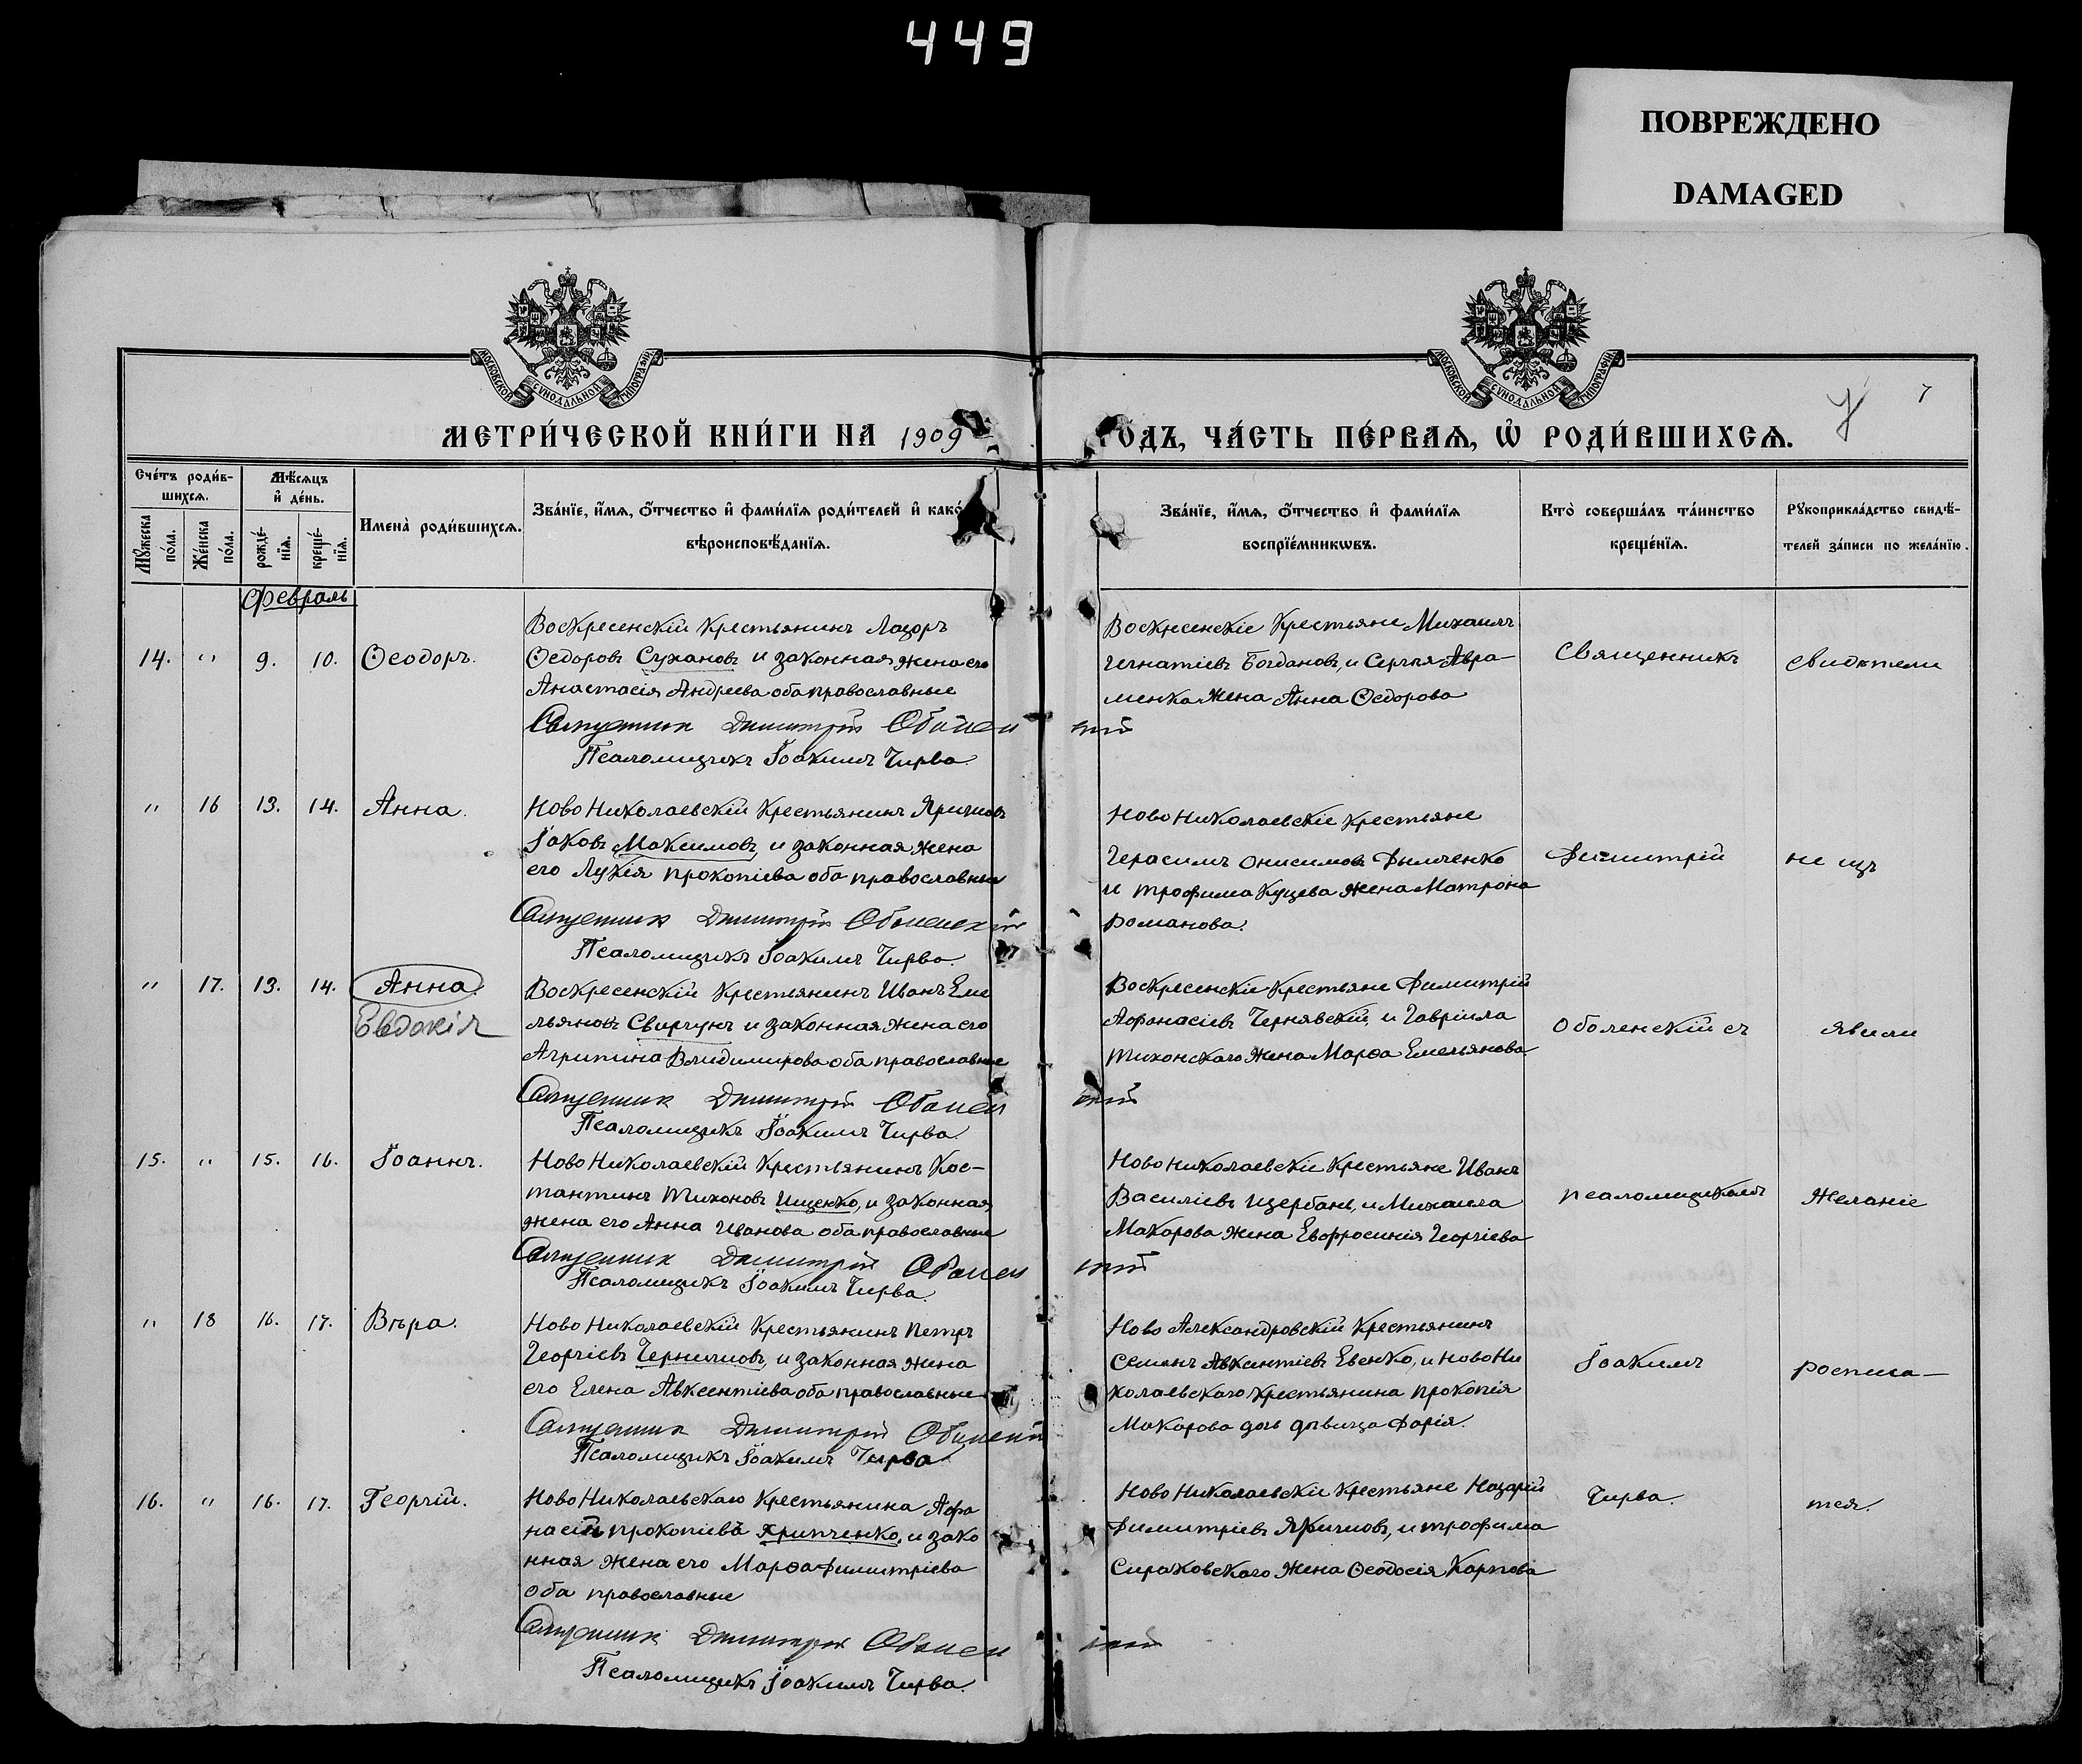 449
ПОВРЕЖДЕНО
DAMAGED
МОСКОВСКОЙ СѴНОДАЛЬНОЙ ТИПОГРАФІИ
МОСКОВСКОЙ СѴНОДАЛЬНОЙ ТИПОГРАФІИ
7
МЕТРИ́ЧЕСКОЙ КНИ́ГИ НА 1909
ГОДЪ, ЧА́СТЬ ПЕ́РВАЯ, Ѡ҆ РОДИ́ВШИХСЯ.
Сче́тъ роди́в-
шихся.
Мѣ́сяцъ
и҆ де́нь.
Мꙋ́жеска
по́ла.
Же́нска
по́ла.
рожде́-
нїя.
креще́-
нїя.
Имена̀ роди́вшихся.
Зва́нїе, и҆́мя, ѻ҆́тчество и҆ фами́лїя роди́телей и҆ како́
вѣроисповѣ́данїя.
Зва́нїе, и҆́мя, ѻ҆́тчество и҆ фами́лїя
воспрїе́мникѡвъ.
Кто̀ соверша́лъ та́инство
креще́нїя.
Рꙋкоприкла́дство свидѣ́-
телей за́писи по жела́нїю.
Февраль
14. " 9. 10. Ѳеодоръ.
Воскресенскій крестьянинъ Лазоръ
Ѳедоровъ Сухановъ и законная жена его
Анастасія Андреева оба православные
Священник Димитрій Оболенскій
Псаломщикъ Іоакимъ Чирва.
Воскресенскіе Крестьяне Михаилъ
Игнатіевъ Богдановъ, и Сергѣя Авра-
менка жена Анна Ѳедорова
Священникъ
свидѣтели
" 16 13. 14. Анна.
Ново Николаевскій Крестьянинъ
Іаковъ Максимовъ, и законная жена
его Лукія прокопіева оба православные
Священник Димитрій Оболенскій
Псаломщикъ Іоакимъ Чирва.
Ново Николаевскіе крестьяне
Герасимъ Онисимовъ
и трофима Куцева жена Матрона
романова.
Димитрій
не изъ
" 17. 13. 14. Анна.
Евдокія
Воскресенскій Крестьянинъ Иванъ Еме
льяновъ Свиргунъ и законная жена его
Агрипина Владимирова оба православные
Священник Димитрій Оболенскій
Псаломщикъ Іоакимъ Чирва.
Воскресенскіе Крестьяне Димитрій
Афонасіевъ Чернявскій, и Гавріила
тихонскаго жена Марѳа Емельянова
Оболенскій съ
явили
15. " 15. 16. Іоаннъ.
Ново Николаевскій Крестьянинъ Кос-
тантинъ тихоновъ Ищенко, и законная
жена его Анна Иванова оба православные
Священник Димитрій Оболенскій
Псаломщикъ Іоакимъ Чирва.
Ново николаевскіе Крестьяне Иванъ
Василіевъ Щербань, и Михаила
Макарова жена Евфросинія Георгіева
псаломщикомъ
желаніе
" 18 16. 17. Вѣра.
Ново Николаевскій Крестьянинъ Петръ
Георгіевъ и законная жена
его Елена Авксентіева оба православные
Священник Димитрій Оболенскій
Псаломщикъ Іоакимъ Чирва
Ново Александровскій Крестьянинъ
Семенъ Авкентіевъ Евенко, и Ново Ни
колаевскаго крестьянина прокопія
Макарова дочь дѣвица Дарія.
Іоакимъ
росписа—
16. " 16. 17. Георгій.
Ново Николаевскаго Крестьянина Афа
насій прокопіевъ Крипченко, и зако
нная жена его Марѳа Димитріева
оба православные
Священник Димитрій Оболенскій
Псаломщикъ Іоакимъ Чирва.
Ново Николаевскіе Крестьяне Назарій
Димитріевъ и трофима
Сираковскаго жена Ѳеодосія Карпова
Чирва.
тся.